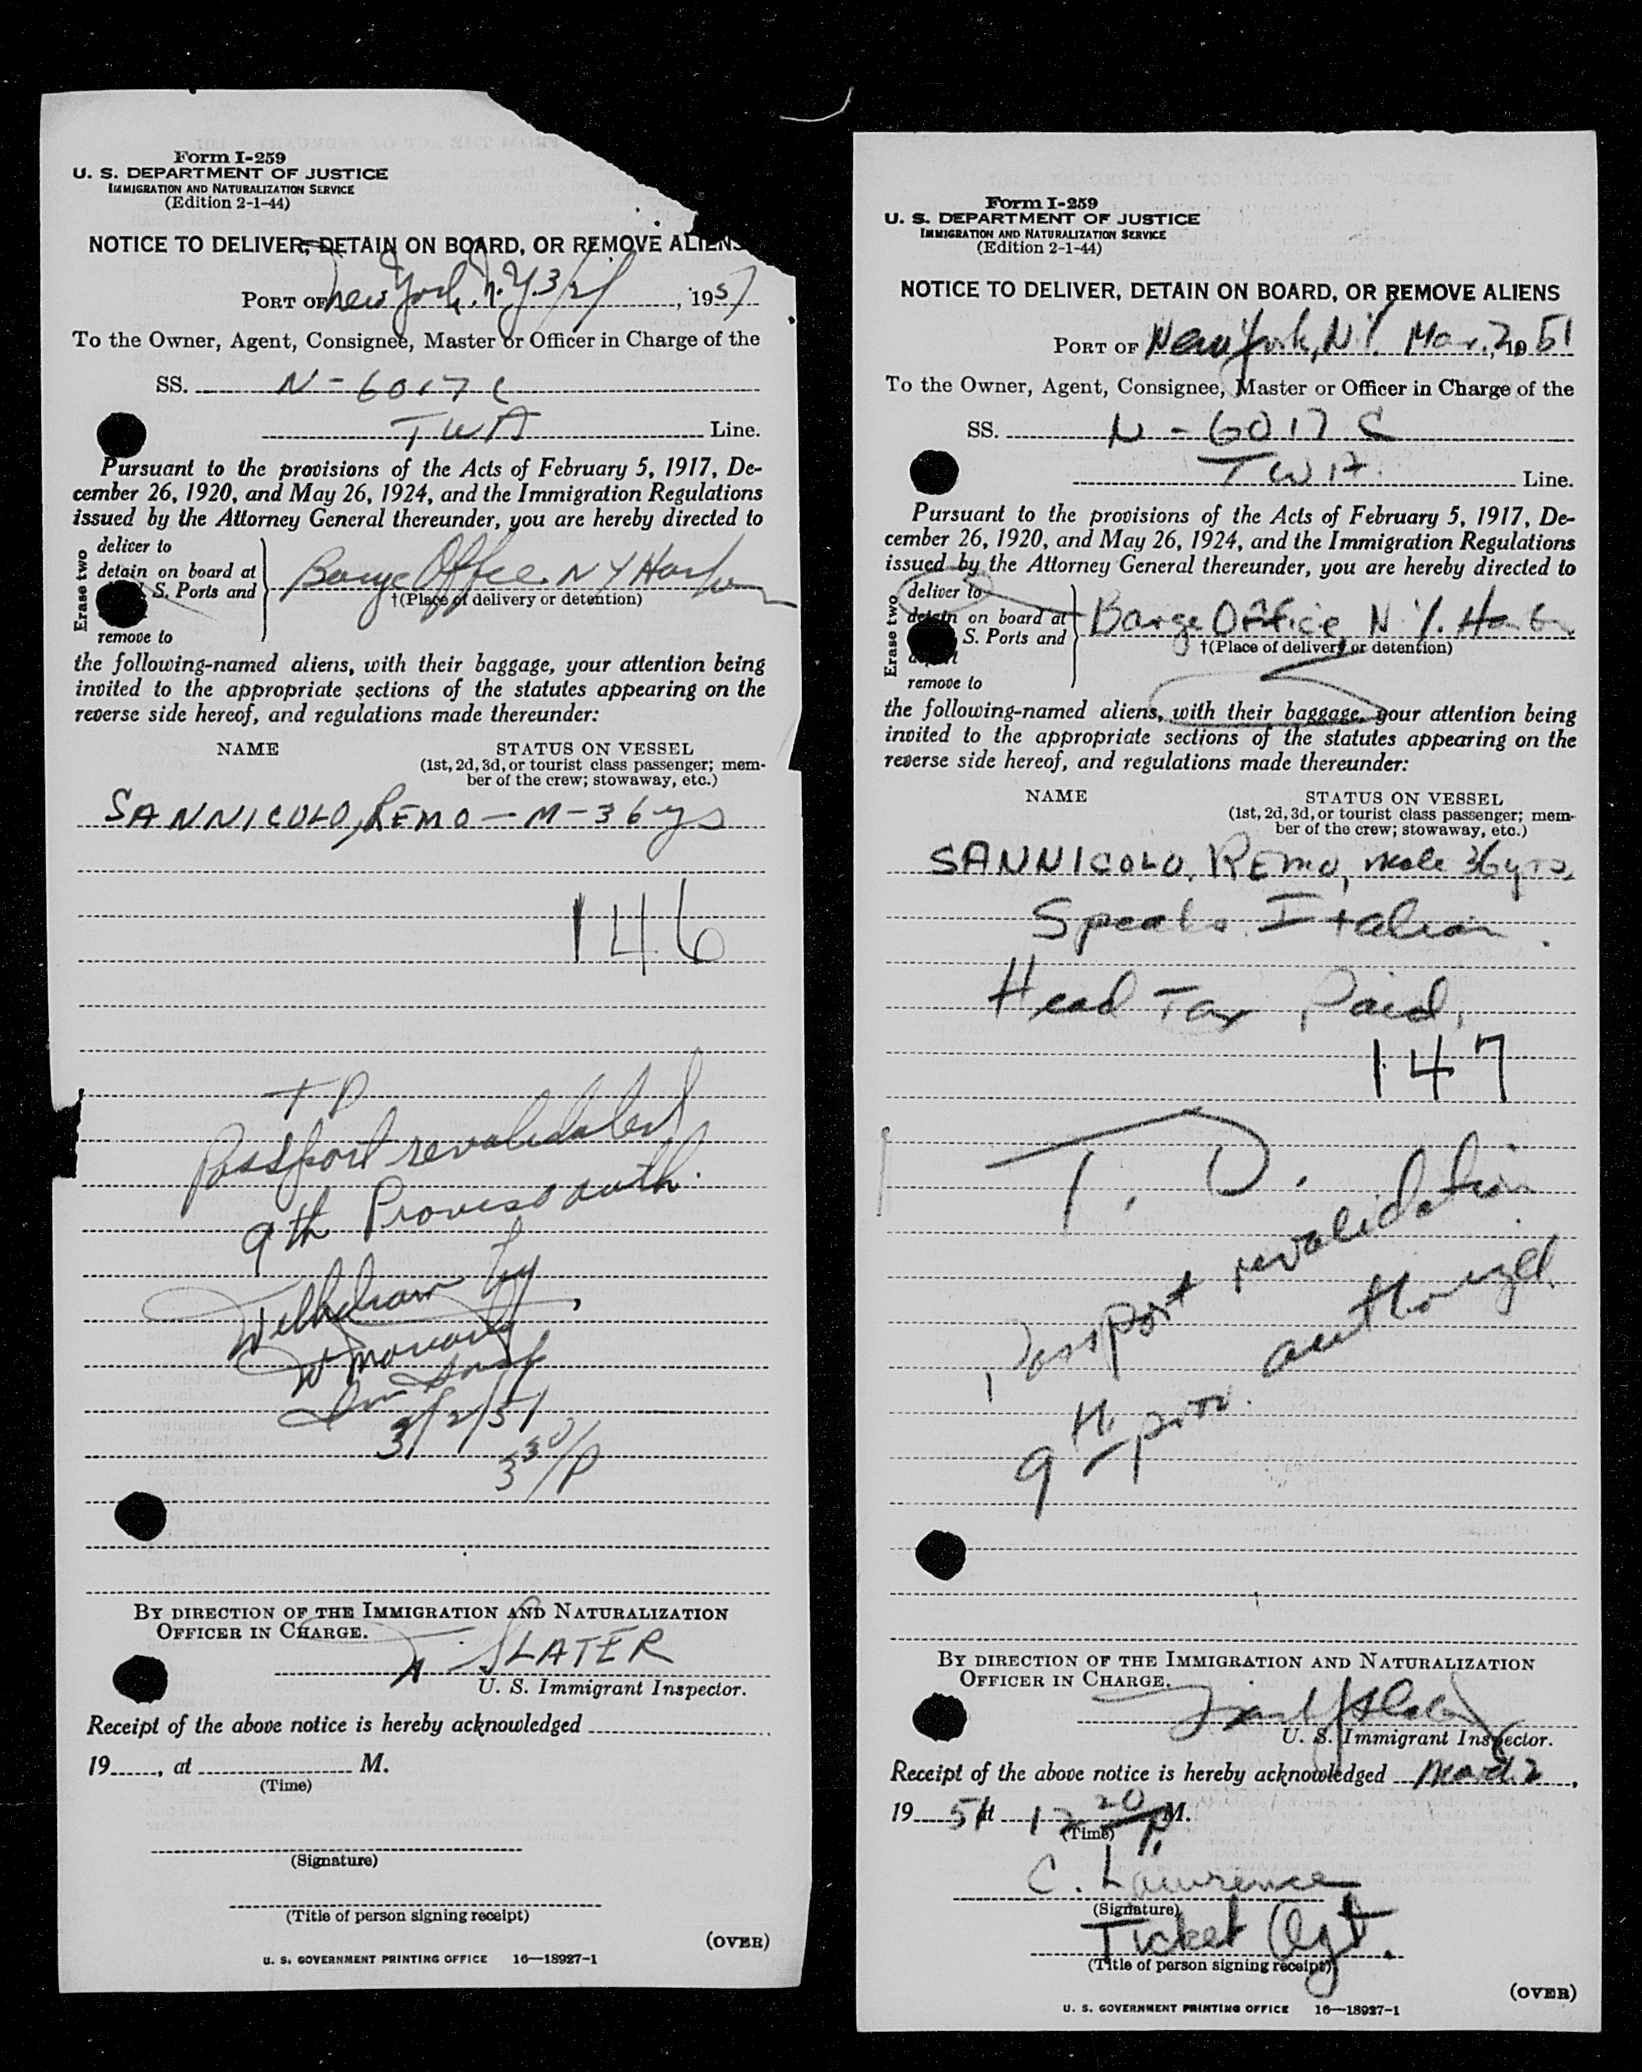 Form I-259
U. S. DEPARTMENT OF JUSTICE
IMMIGRATION AND NATURALIZATION SERVICE
(Edition 2-1-44)
NOTICE TO DELIVER, DETAIN ON BOARD, OR REMOVE ALIENS
PORT OF New York, N.Y. 3/2/, 1951
To the Owner, Agent, Consignee, Master or Officer in Charge of the
SS. N-6017C
TWA Line.
Pursuant to the provisions of the Acts of February 5, 1917, De-
cember 26, 1920, and May 26, 1924, and the Immigration Regulations
issued by the Attorney General thereunder, you are hereby directed to
Erase two
deliver to
detain on board at
S. Ports and
remove to
Barge Office. N Y Harbor
†(Place of delivery or detention)
the following-named aliens, with their baggage, your attention being
invited to the appropriate sections of the statutes appearing on the
reverse side hereof, and regulations made thereunder:
NAME STATUS ON VESSEL
(1st, 2d, 3d, or tourist class passenger; mem-
ber of the crew; stowaway, etc.)
SANNICOLO, REMO - M - 36 ys
146
T D
Passport revalidated
9th Proviso auth.
Withdrawn by
3/2/51
3 30/P
BY DIRECTION OF THE IMMIGRATION AND NATURALIZATION
OFFICER IN CHARGE.
SLATER
U. S. Immigrant Inspector.
Receipt of the above notice is hereby acknowledged
19 , at M.
(Time)
(Signature)
(Title of person signing receipt)
(OVER)
U. S. GOVERNMENT PRINTING OFFICE 16—18927-1
Form I-259
U. S. DEPARTMENT OF JUSTICE
IMMIGRATION AND NATURALIZATION SERVICE
(Edition 2-1-44)
NOTICE TO DELIVER, DETAIN ON BOARD, OR REMOVE ALIENS
PORT OF New York, N.Y. Mar. 2, 1951
To the Owner, Agent, Consignee, Master or Officer in Charge of the
SS. N-6017C
TWA. Line.
Pursuant to the provisions of the Acts of February 5, 1917, De-
cember 26, 1920, and May 26, 1924, and the Immigration Regulations
issued by the Attorney General thereunder, you are hereby directed to
Erase two
deliver to
detain on board at
S. Ports and
deport
remove to
Barge Office, N.Y. Harbor
†(Place of delivery or detention)
the following-named aliens, with their baggage, your attention being
invited to the appropriate sections of the statutes appearing on the
reverse side hereof, and regulations made thereunder:
NAME STATUS ON VESSEL
(1st, 2d, 3d, or tourist class passenger; mem-
ber of the crew; stowaway, etc.)
SANNICOLO, REMO, male 36 yrs,
Speaks Italian.
Head Tax Paid,
147
T. D.
Passport revalidation
9th prov. authorized.
BY DIRECTION OF THE IMMIGRATION AND NATURALIZATION
OFFICER IN CHARGE.
U. S. Immigrant Inspector.
Receipt of the above notice is hereby acknowledged March 2,
19 51 at 12 20 P. M.
(Time)
C. Lawrence
(Signature)
Ticket Agt.
(Title of person signing receipt)
(OVER)
U. S. GOVERNMENT PRINTING OFFICE 16—18927-1